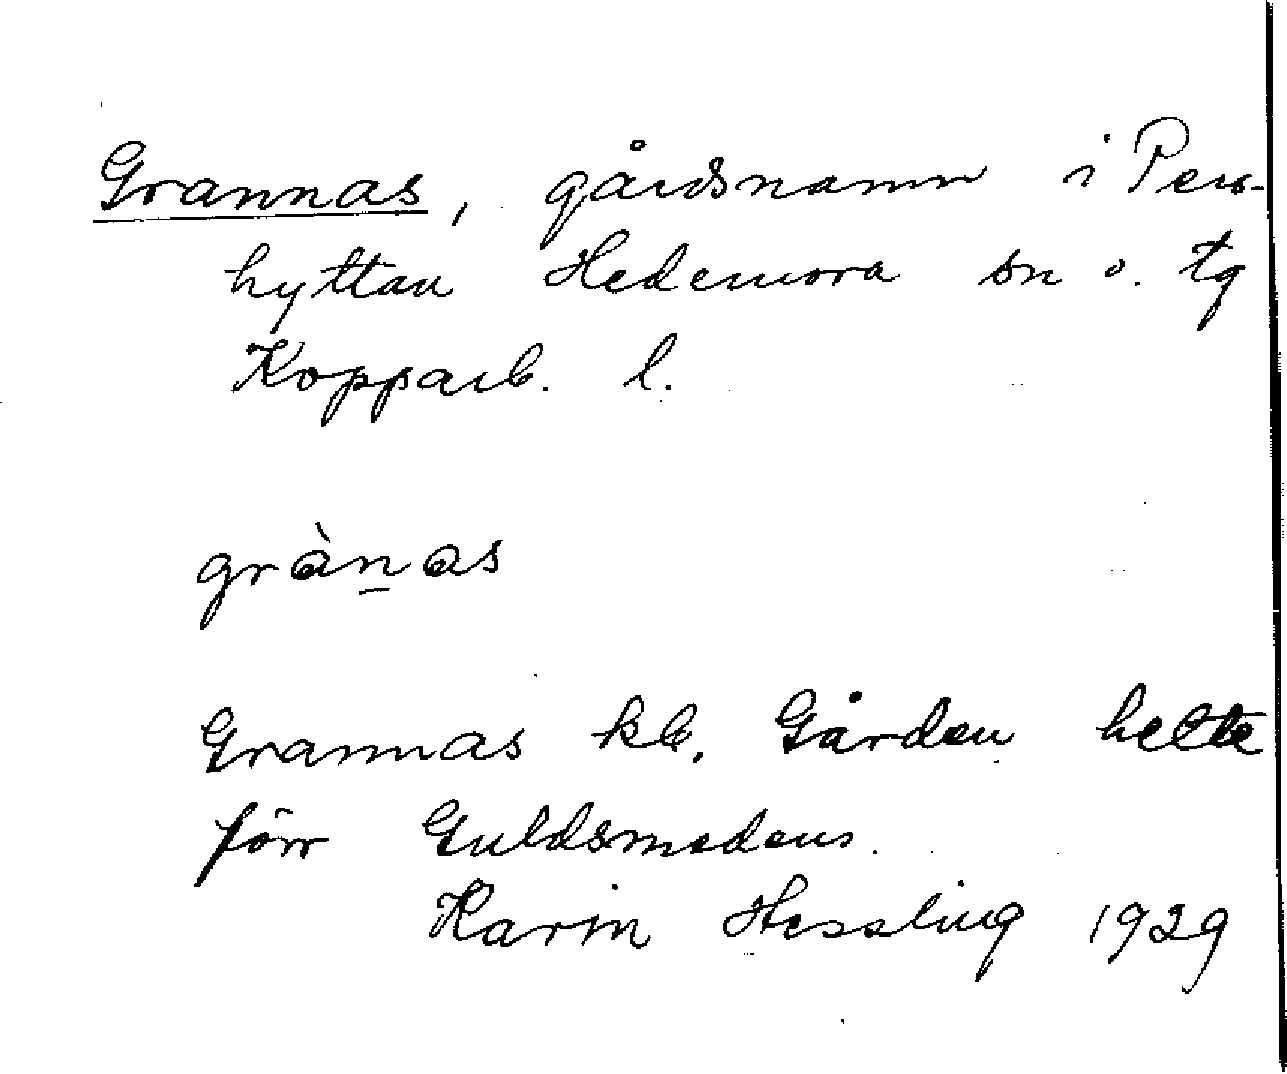 Grannas, gårdsnamn i Pers-
hyttan Hedemora sn o. tg
Kopparb. l.
grànas
Grannas kb. Gården hette
förr Guldsmedens.
Karin Hessling 1929